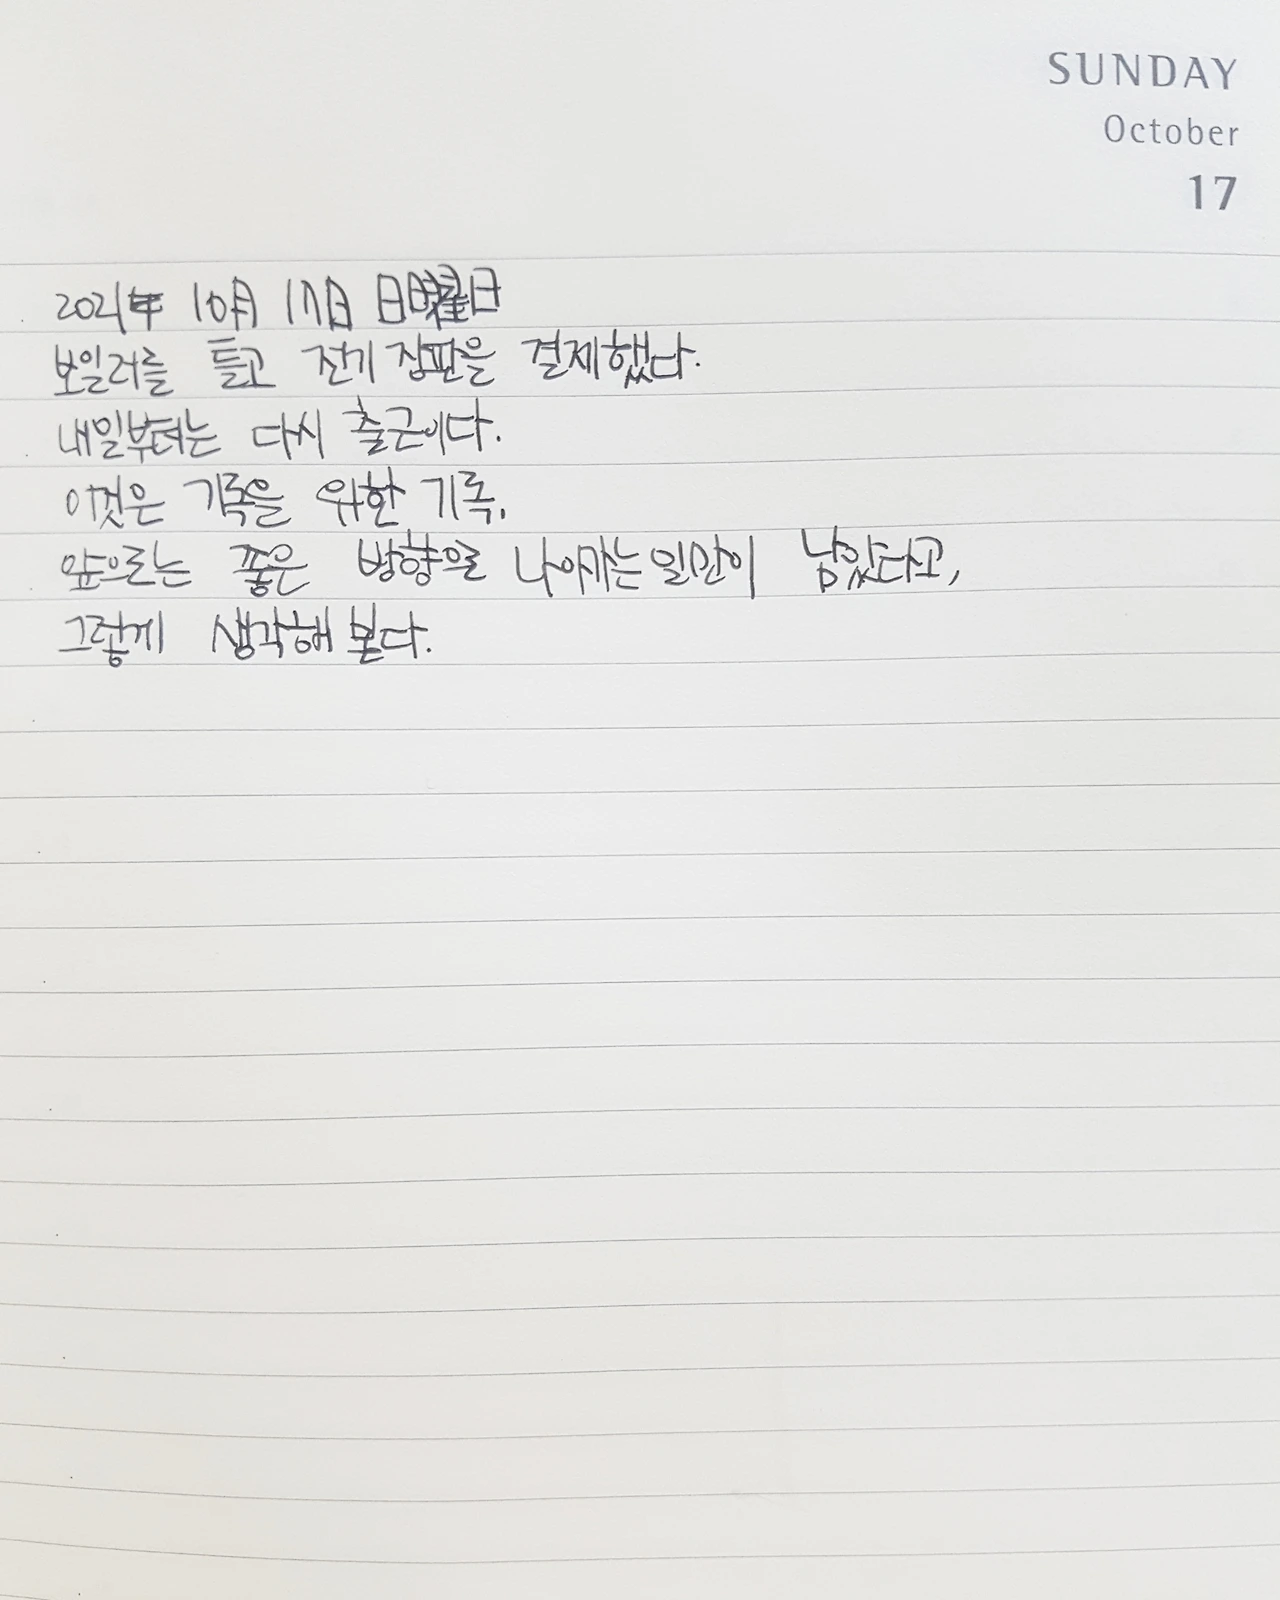 SUNDAY
October
17
2021年 10月 17日 日曜日
보일러를 틀고 전기장판을 결제했다.
내일부터는 다시 출근이다.
이것은 기록을 위한 기록.
앞으로는 좋은 방향으로 나아가는 일만이 남았다고,
그렇게 생각해 본다.